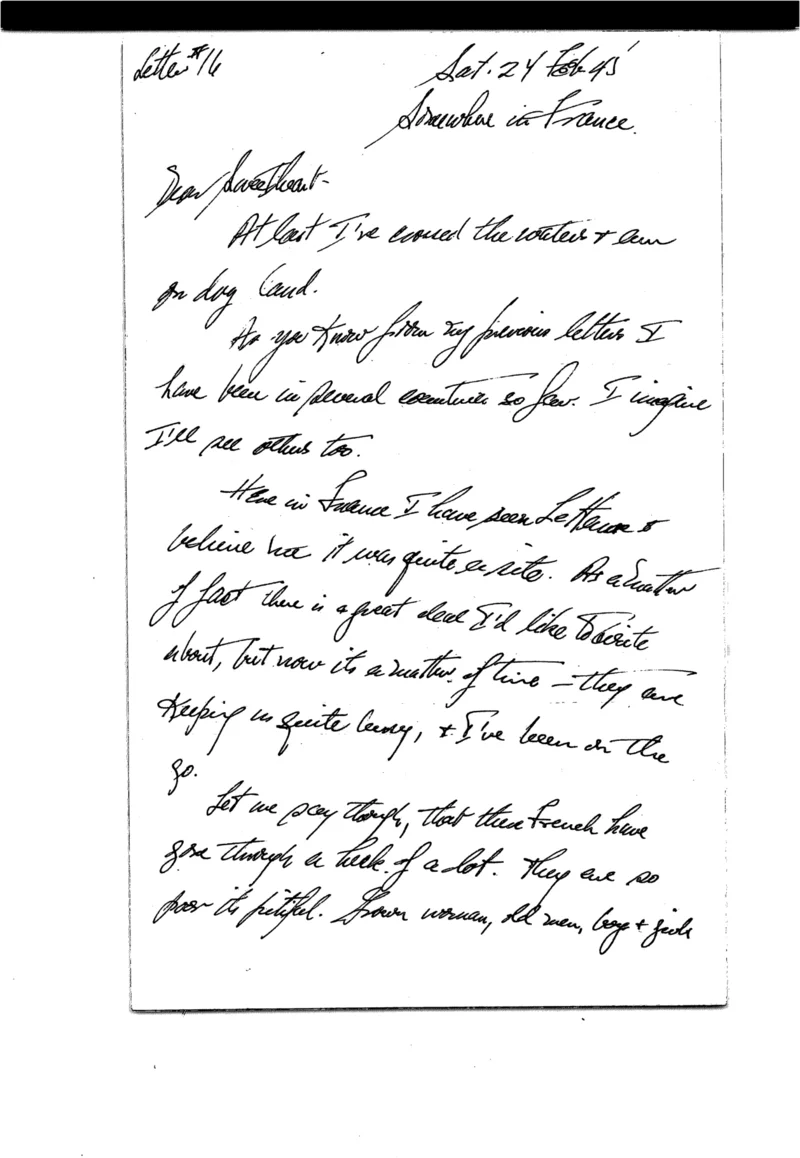 Letter #16
Sat. 24 Feb 45
Somewhere in France.
Dear Sweetheart-
At last I've crossed the waters & am
on dry land.
As you know from my previous letters I
have been in several countries so far. I imagine
I'll see others too.
Here in France I have seen LeHavre &
believe me it was quite a site. As a matter
of fact there is a great deal I'd like to write
about, but now its a matter of time - they are
keeping us quite busy, & I've been on the
go.
Let me say though, that these French have
gone through a heck of a lot. They are so
poor its pitiful. Grown woman, old men, boys & girls